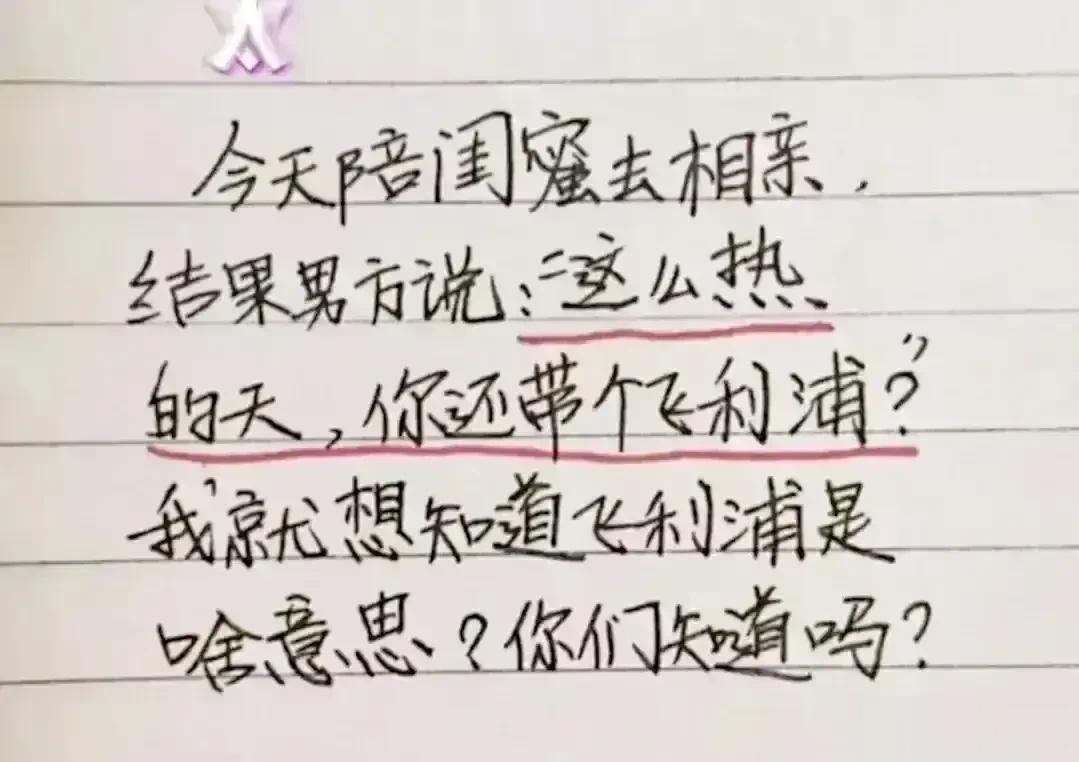 今天陪闺蜜去相亲，
结果男方说："这么热
的天，你还带个飞利浦？"
我就想知道飞利浦是
啥意思？你们知道吗？